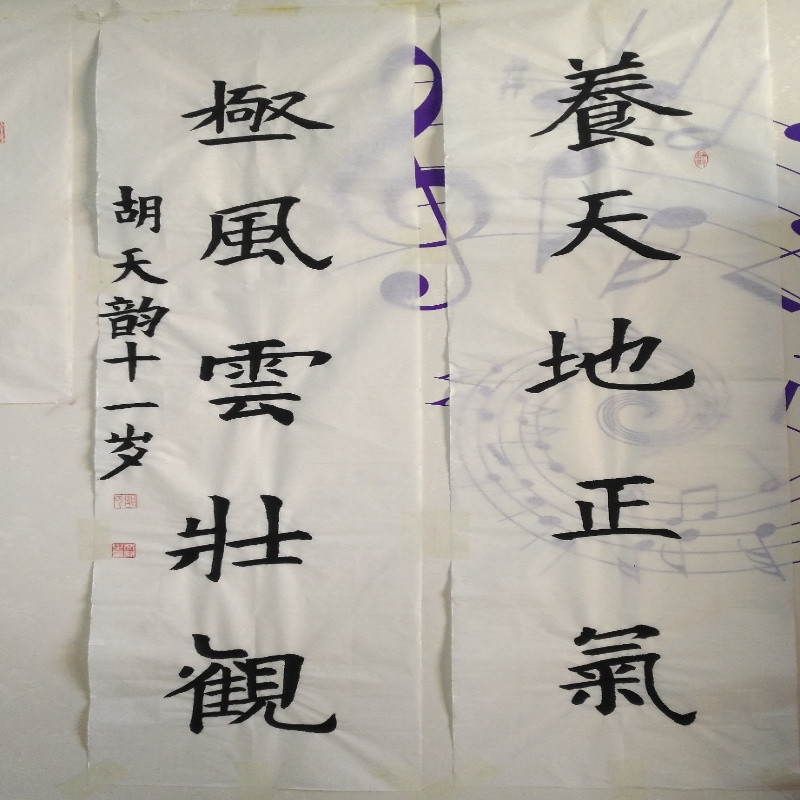 養天地正氣
極風雲壯觀
胡天韵十一岁